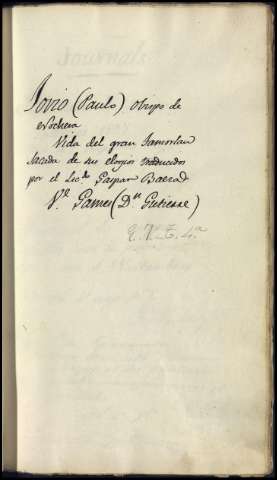 Jovio (Paulo) obispo de
Nochera
Vida del gran Tamorlan
sacada de sus elogios traducidos
por el Licdo Gaspar Baeza
Ve Games (Dn Gutierre)
E. V_ E. 4.a